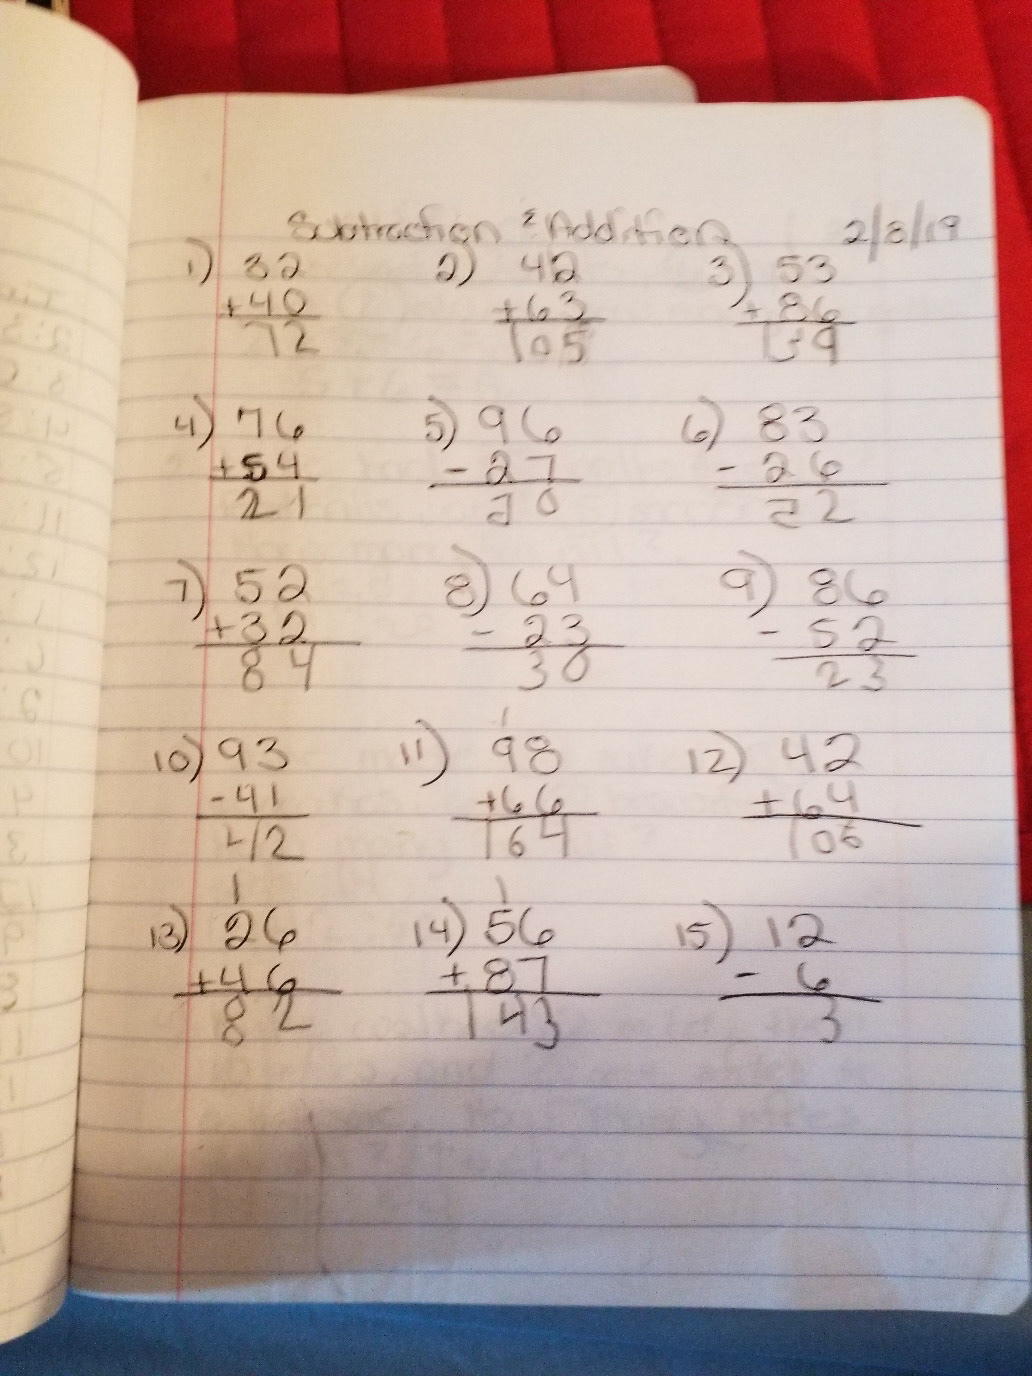 Subtraction & Addition 2/8/19
1) 32 2) 42 3) 53
+40 +63 +86
72 105 139
4) 76 5) 96 6) 83
+54 - 27 - 26
21 70 22
7) 52 8) 64 9) 86
+32 - 23 - 52
84 30 23
10) 93 11) 98 12) 42
1
-41 +66 +64
42 164 106
1 1
13) 26 14) 56 15) 12
+46 +87 - 6
82 143 3